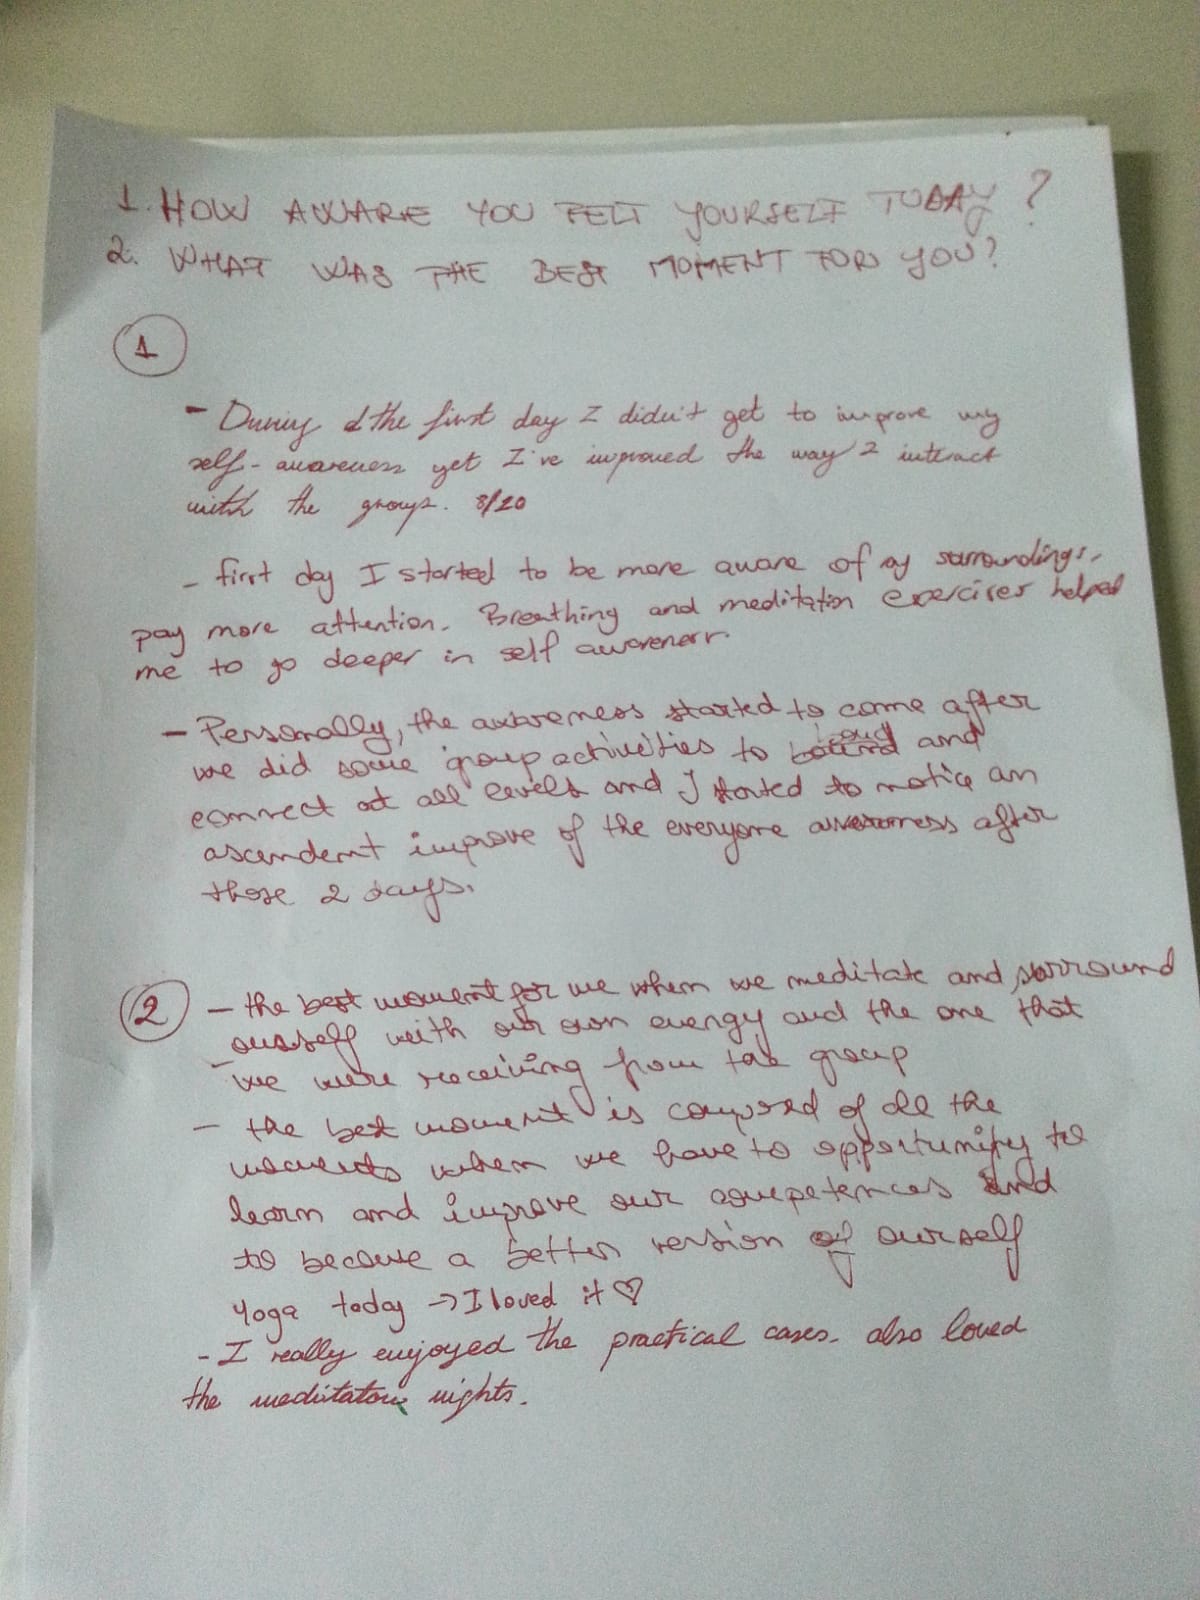 1. HOW AWARE YOU FELT YOURSELF TODAY ?
2. WHAT WAS THE BEST MOMENT FOR YOU?
1
- During the first day I didn't get to improve my
self-awareness yet I've improved the way I interact
with the group. 8/20
- first day I started to be more aware of my surroundings,
pay more attention. Breathing and meditation exercises helped
me to go deeper in self awareness.
- Personally, the awareness started to come after
we did some group activities to bound and
connect at all levels and I started to notice an
ascendent improve of the everyone awareness after
those 2 days.
2 - the best moment for me when we meditate and surround
ourself with our own energy and the one that
- we were receiving from the group
- the best moment is composed of all the
moments when we have to opportunity to
learn and improve our competences and
to become a better version of ourself
Yoga today -> I loved it ♡
- I really enjoyed the practical cases. also loved
the meditation nights.